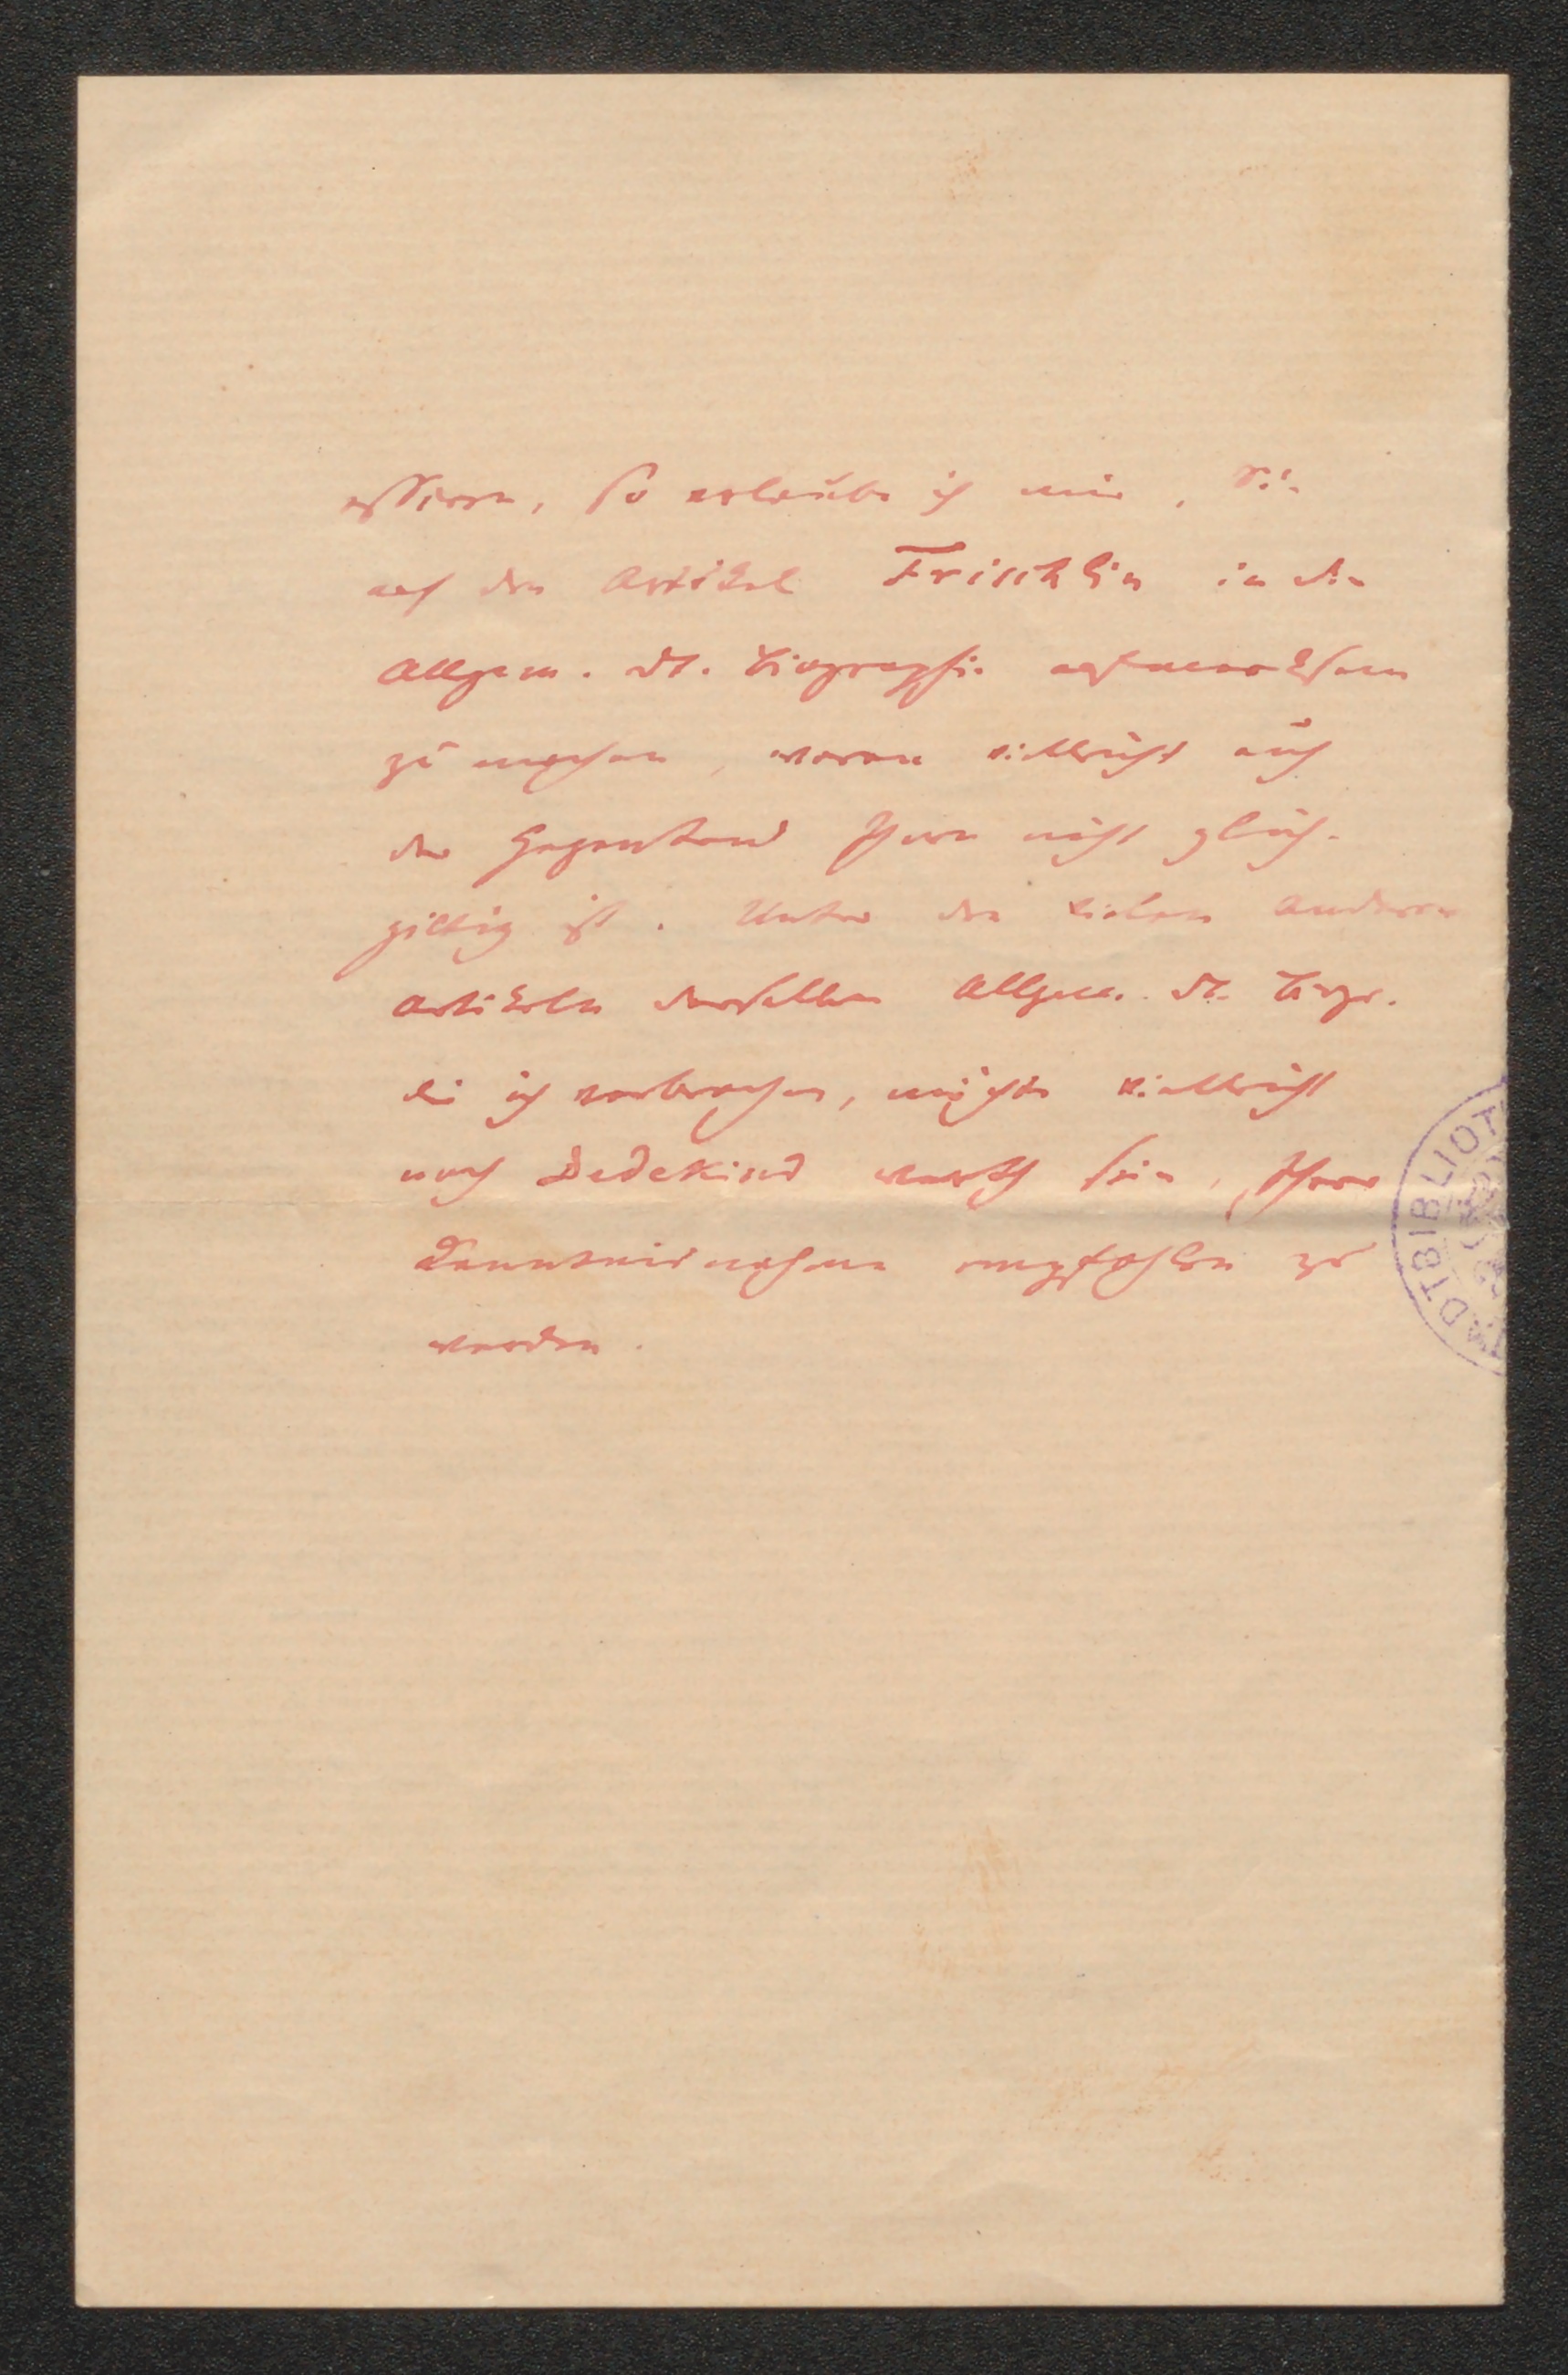 essiren, so erlaube ich mir, Sie
auf den Artikel Frischlin in der
Allgem. Dt. Biographie aufmerksam
zu machen, woran vielleicht auch
der Gegenstand Ihnen nicht gleich-
giltig ist. Unter den vielen anderen
Artikeln derselben Allgem. Dt. Biogr.
die ich verbrochen, möchte vielleicht
noch Dedekind werth sein, Ihrer
Kenntnisnahme empfohlen zu
werden.
ADTBIBLIOT